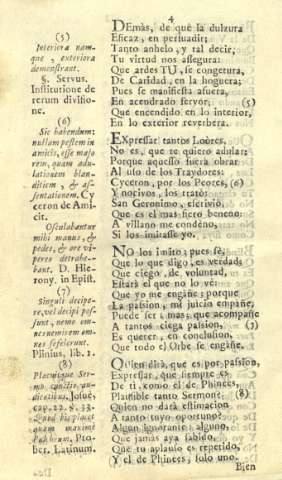 4
DEmàs, de què la dulzura
Eficaz, en persuadir;
Tanto anhelo, y tal decir,
Tu virtud nos assegura:
Que ardes TU, se congetura,
De Caridad, en la hoguera;
Pues se manifiesta afuera,
En acendrado fervor, (5)
Que encendido en lo interior,
En lo exterior reverbera.
EXpressar tantos Loòres,
No es, que te quiero adular;
Porque aquesto fuera obrar
Al uso de los Traydores:
Cyceron, por los Peores, (6)
Y nocivos, los tratò:
San Geronimo, escrivió
Que es el mas fiero beneno:
A villano me condeno,
Si los imitasse yo.
NO los imito; pues sè,
Que lo que digo, es verdad;
Que ciego, de voluntad,
Estarà el que no lo vè:
Que yo me engañe; porque
La passion, mi juicio empañe,
Puede ser; mas, que acompañe
A tantos ciega passion, (7)
Es querer, en conclusion,
Que todo el Orbe se engañe.
QUien dirà, que es por passion,
Expressar, que siempre
De ti como el de Phinees,
Plausible tanto Sermon: (8)
Quien no darà estimacion
A tanto tuyo oportuno?
Algun Ignorante; alguno,
Que jamàs aya sabido,
Que tu aplauso es repetido,
Y el de Phinees, solo uno.
Bien
(5)
Interiora namque, exteriora
demonstrant.
§. Servus.
Institutione de
rerum divisione.
(6)
Sic habendum;
nullam pestem in
amicis, esse majorem, quam adulationem blanditiem, & assentationem. Cyceron de Amicit.
Osculabantur
mihi manus, &
pedes, & ore vipereo detrahebant. D. Hierony. in Epist.
(7)
Singuli decipere, vel decipi possunt, nemo omnes nemìnem omnes fefelerunt.
Plinius, lib. 1.
(8)
Placuitque Sermo cunctis audientibus. Josuè,
cap. 22. v. 33.
Prober. Latinum.